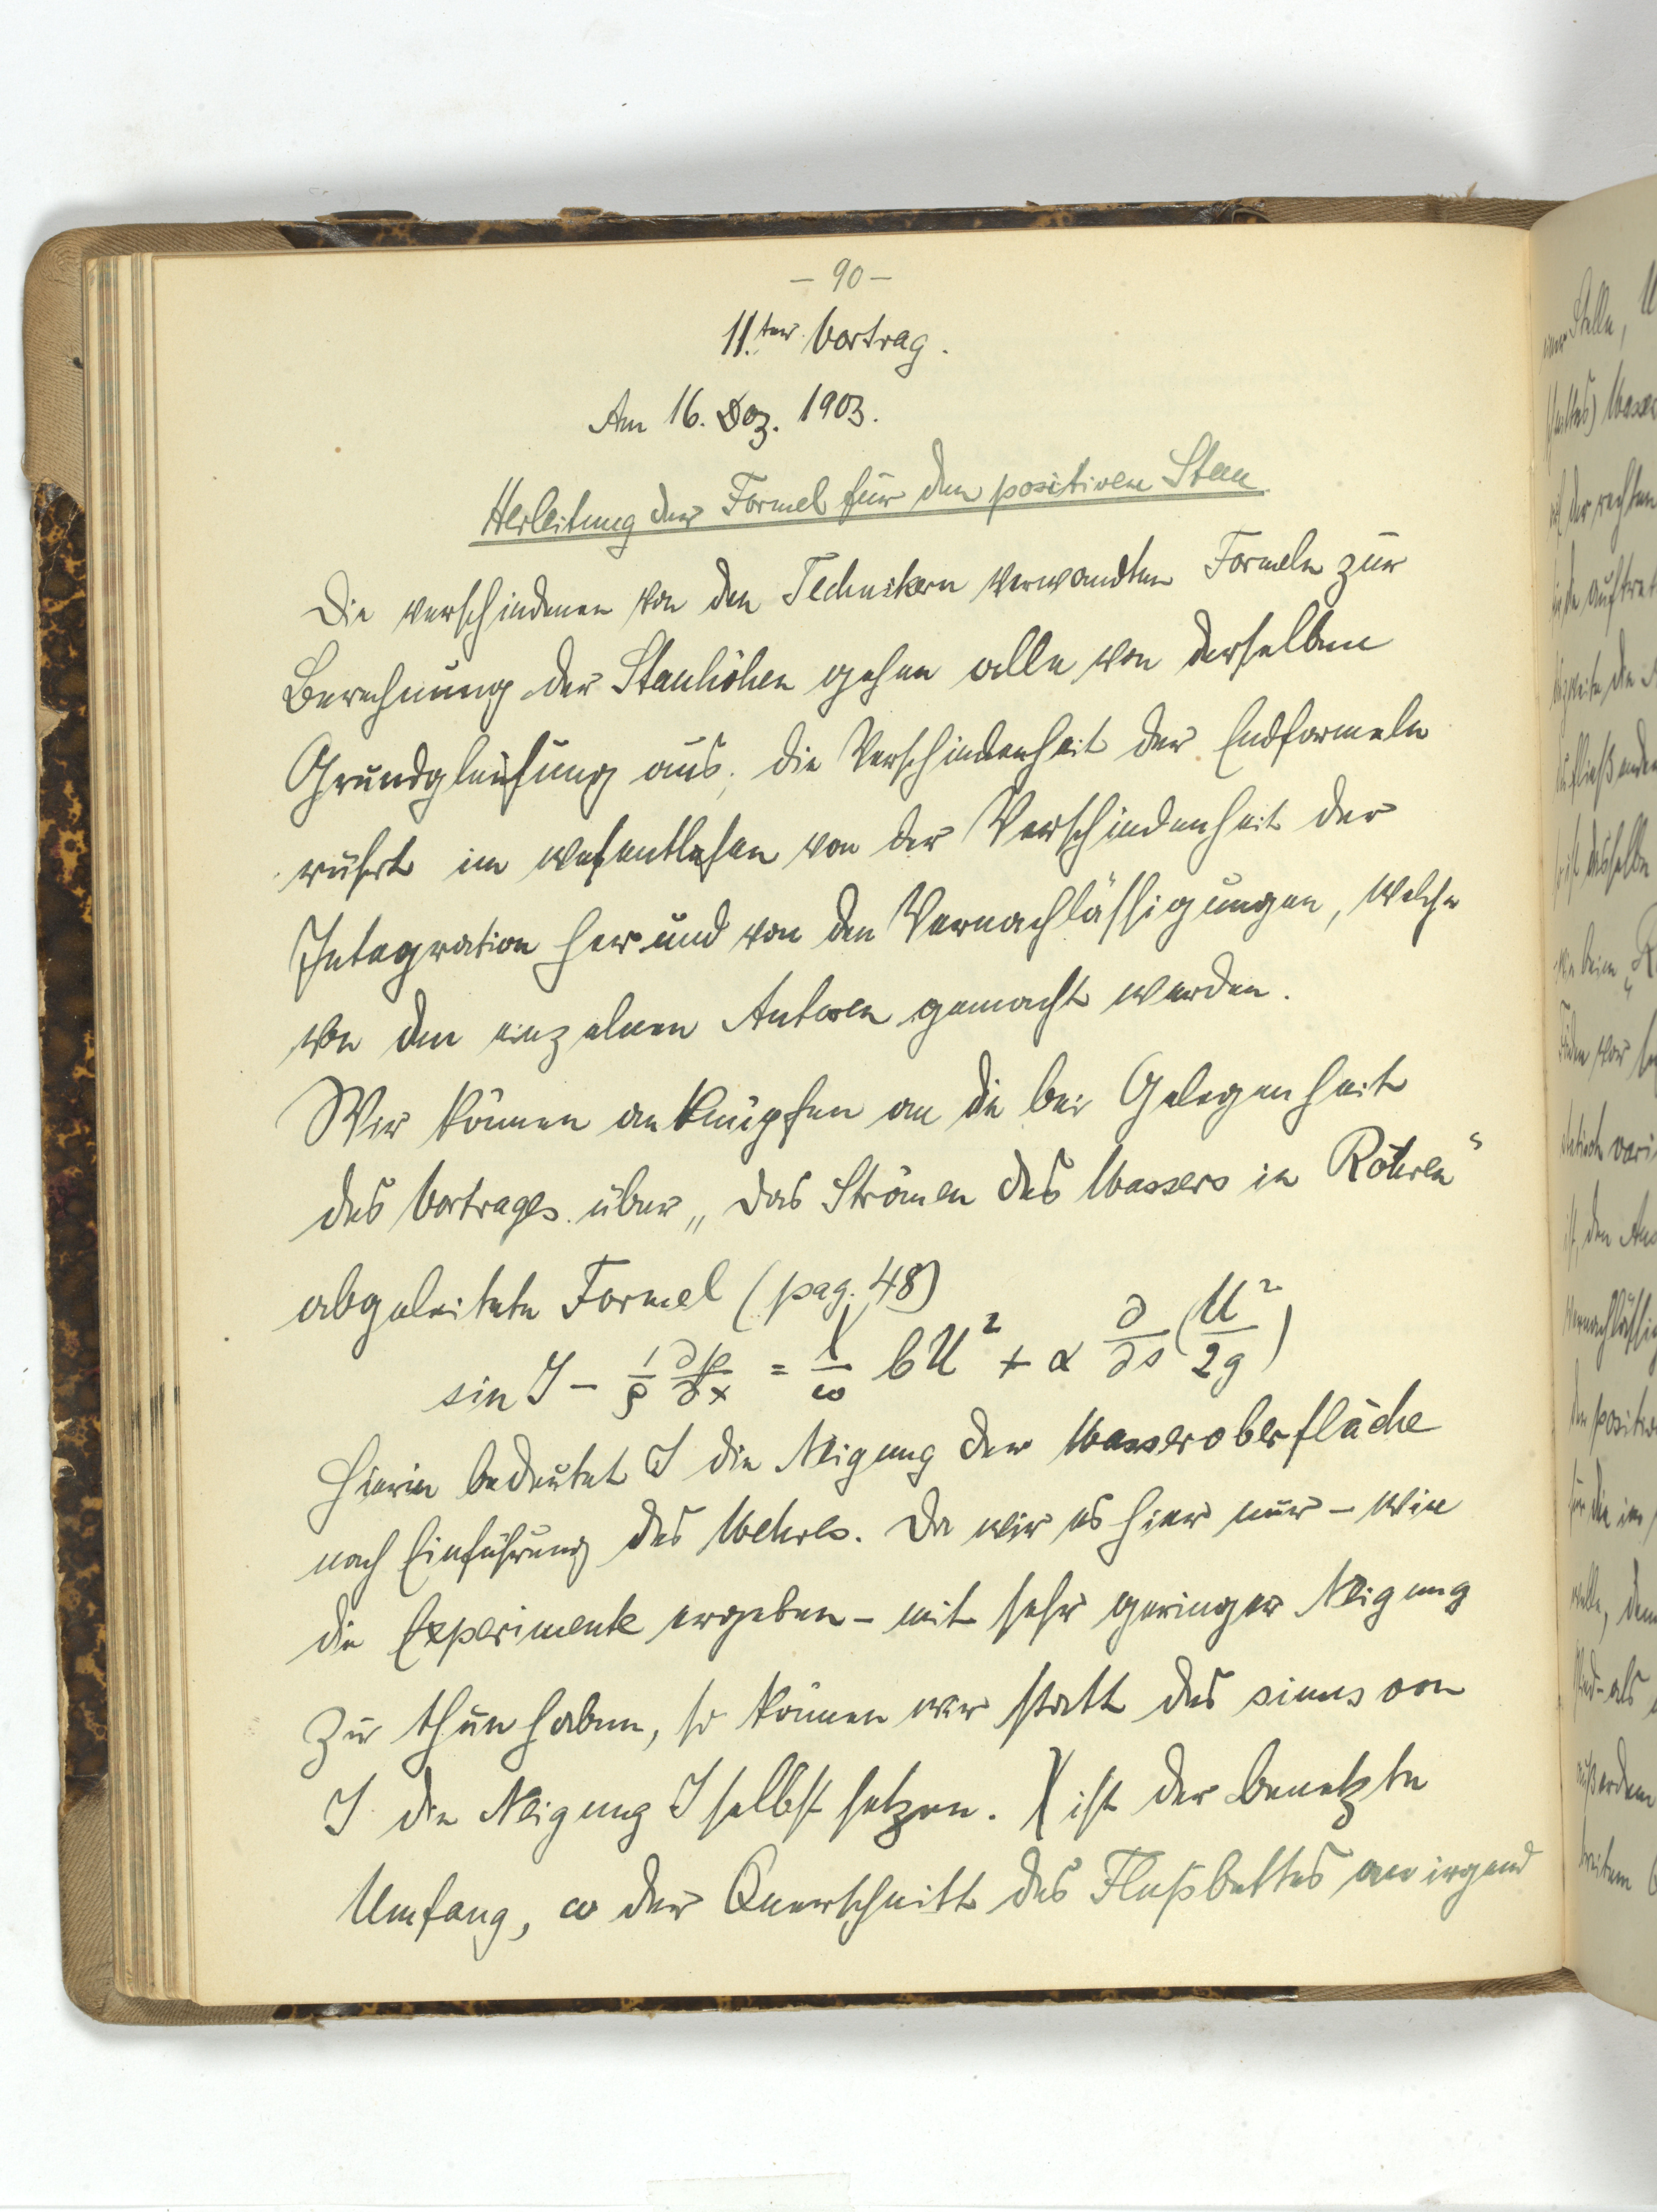 — 90 —
11.ter Vortrag.
Am 16. Dez. 1903.
Herleitung der Formel für den positiven Stau
Die verschiedenen von den Technikern verwandten Formeln zur
Berechnung der Stauhöhen gehen alle von derselben
Grundgleichung aus; die Verschiedenheit der Endformeln
rührt im wesentlichen von der Verschiedenheit der
Integration her und von den Vernachlässigungen, welche
von den einzelnen Autoren gemacht werden.
Wir können anknüpfen an die bei Gelegenheit
des Vortrages über „das Strömen des Wassers in Röhren"
abgeleitete Formel (pag. 48)
sin J − 1/ρ ∂p/∂x = χ/ω bU² + α ∂/∂s (U²/2g)
Hierin bedeutet J die Neigung der Wasseroberfläche
nach Einführung des Wehres. Da wir es hier nur – wie
die Experimente ergeben – mit sehr geringer Neigung
zu thun haben, so können wir statt des sinus von
J die Neigung J selbst setzen. χ ist der benetzte
Umfang, ω der Querschnitt des Flußbettes an irgend